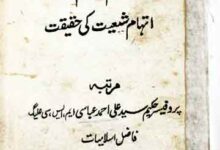 اتہام شیعیت کی حقیقت
مرتبہ
پروفیسر حکیم سید علی احمد عباسی ایم، ایس، سی علیگ
فاضل اسلامیات